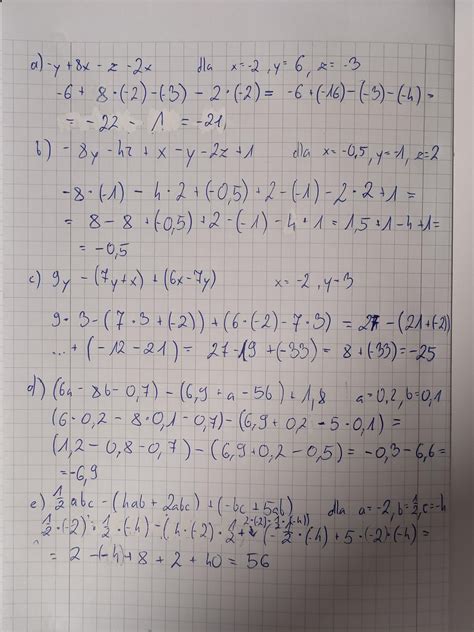 a) -y + 8x - z - 2x dla x = -2, y = 6, z = -3
-6 + 8 · (-2) - (-3) - 2 · (-2) = -6 + (-16) - (-3) - (-4) =
= -22 - 1 = -21
b) -8y - 4z + x - y - 2z + 1 dla x = -0,5, y = -1, z = 2
-8 · (-1) - 4 · 2 + (-0,5) + 2 - (-1) - 2 · 2 + 1 =
= 8 - 8 + (-0,5) + 2 - (-1) - 4 + 1 = 1,5 + 1 - 4 + 1 =
= -0,5
c) 9y - (7y + x) + (6x - 7y) x = -2, y - 3
9 · 3 - (7 · 3 + (-2)) + (6 · (-2) - 7 · 3) = 27 - (21 + (-2))
... + (-12 - 21) = 27 - 19 + (-33) = 8 + (-33) = -25
d) (6a - 8b - 0,7) - (6,9 + a - 5b) + 1,8 a = 0,2, b = 0,1
(6 · 0,2 - 8 · 0,1 - 0,7) - (6,9 + 0,2 - 5 · 0,1) =
(1,2 - 0,8 - 0,7) - (6,9 + 0,2 - 0,5) = -0,3 - 6,6 =
= -6,9
e) 1/2 abc - (4ab + 2abc) + (-bc + 5ab) dla a = -2, b = 1/2, c = -4
1/2 · (-2) · 1/2 · (-4) - (4 · (-2) · 1/2 + 2 · (-2) · 1/2 · (-4)) + (-1/2 · (-4) + 5 · (-2) · (-4) =
= 2 - (-4) + 8 + 2 + 40 = 56